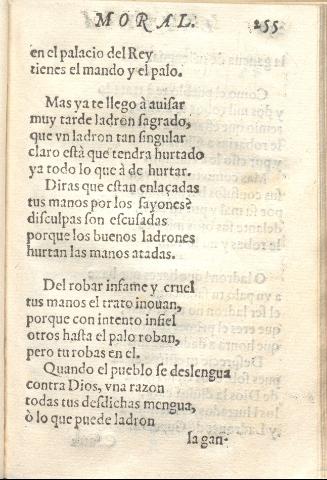 MORAL. 255
en el palacio del Rey
tienes el mando y el palo.
Mas ya te llego à auisar
muy tarde ladron sagrado,
que vn ladron tan singular
claro està que tendra hurtado
ya todo lo que à de hurtar.
Diras que estan enlaçadas
tus manos por los sayones?
disculpas son escusadas
porque los buenos ladrones
hurtan las manos atadas.
Del robar infame y cruel
tus manos el trato inouan,
porque con intento infiel
otros hasta el palo roban,
pero tu robas en el.
Quando el pueblo se deslengua
contra Dios, vna razon
todas tus desdichas mengua,
ò lo que puede ladron
la gan-